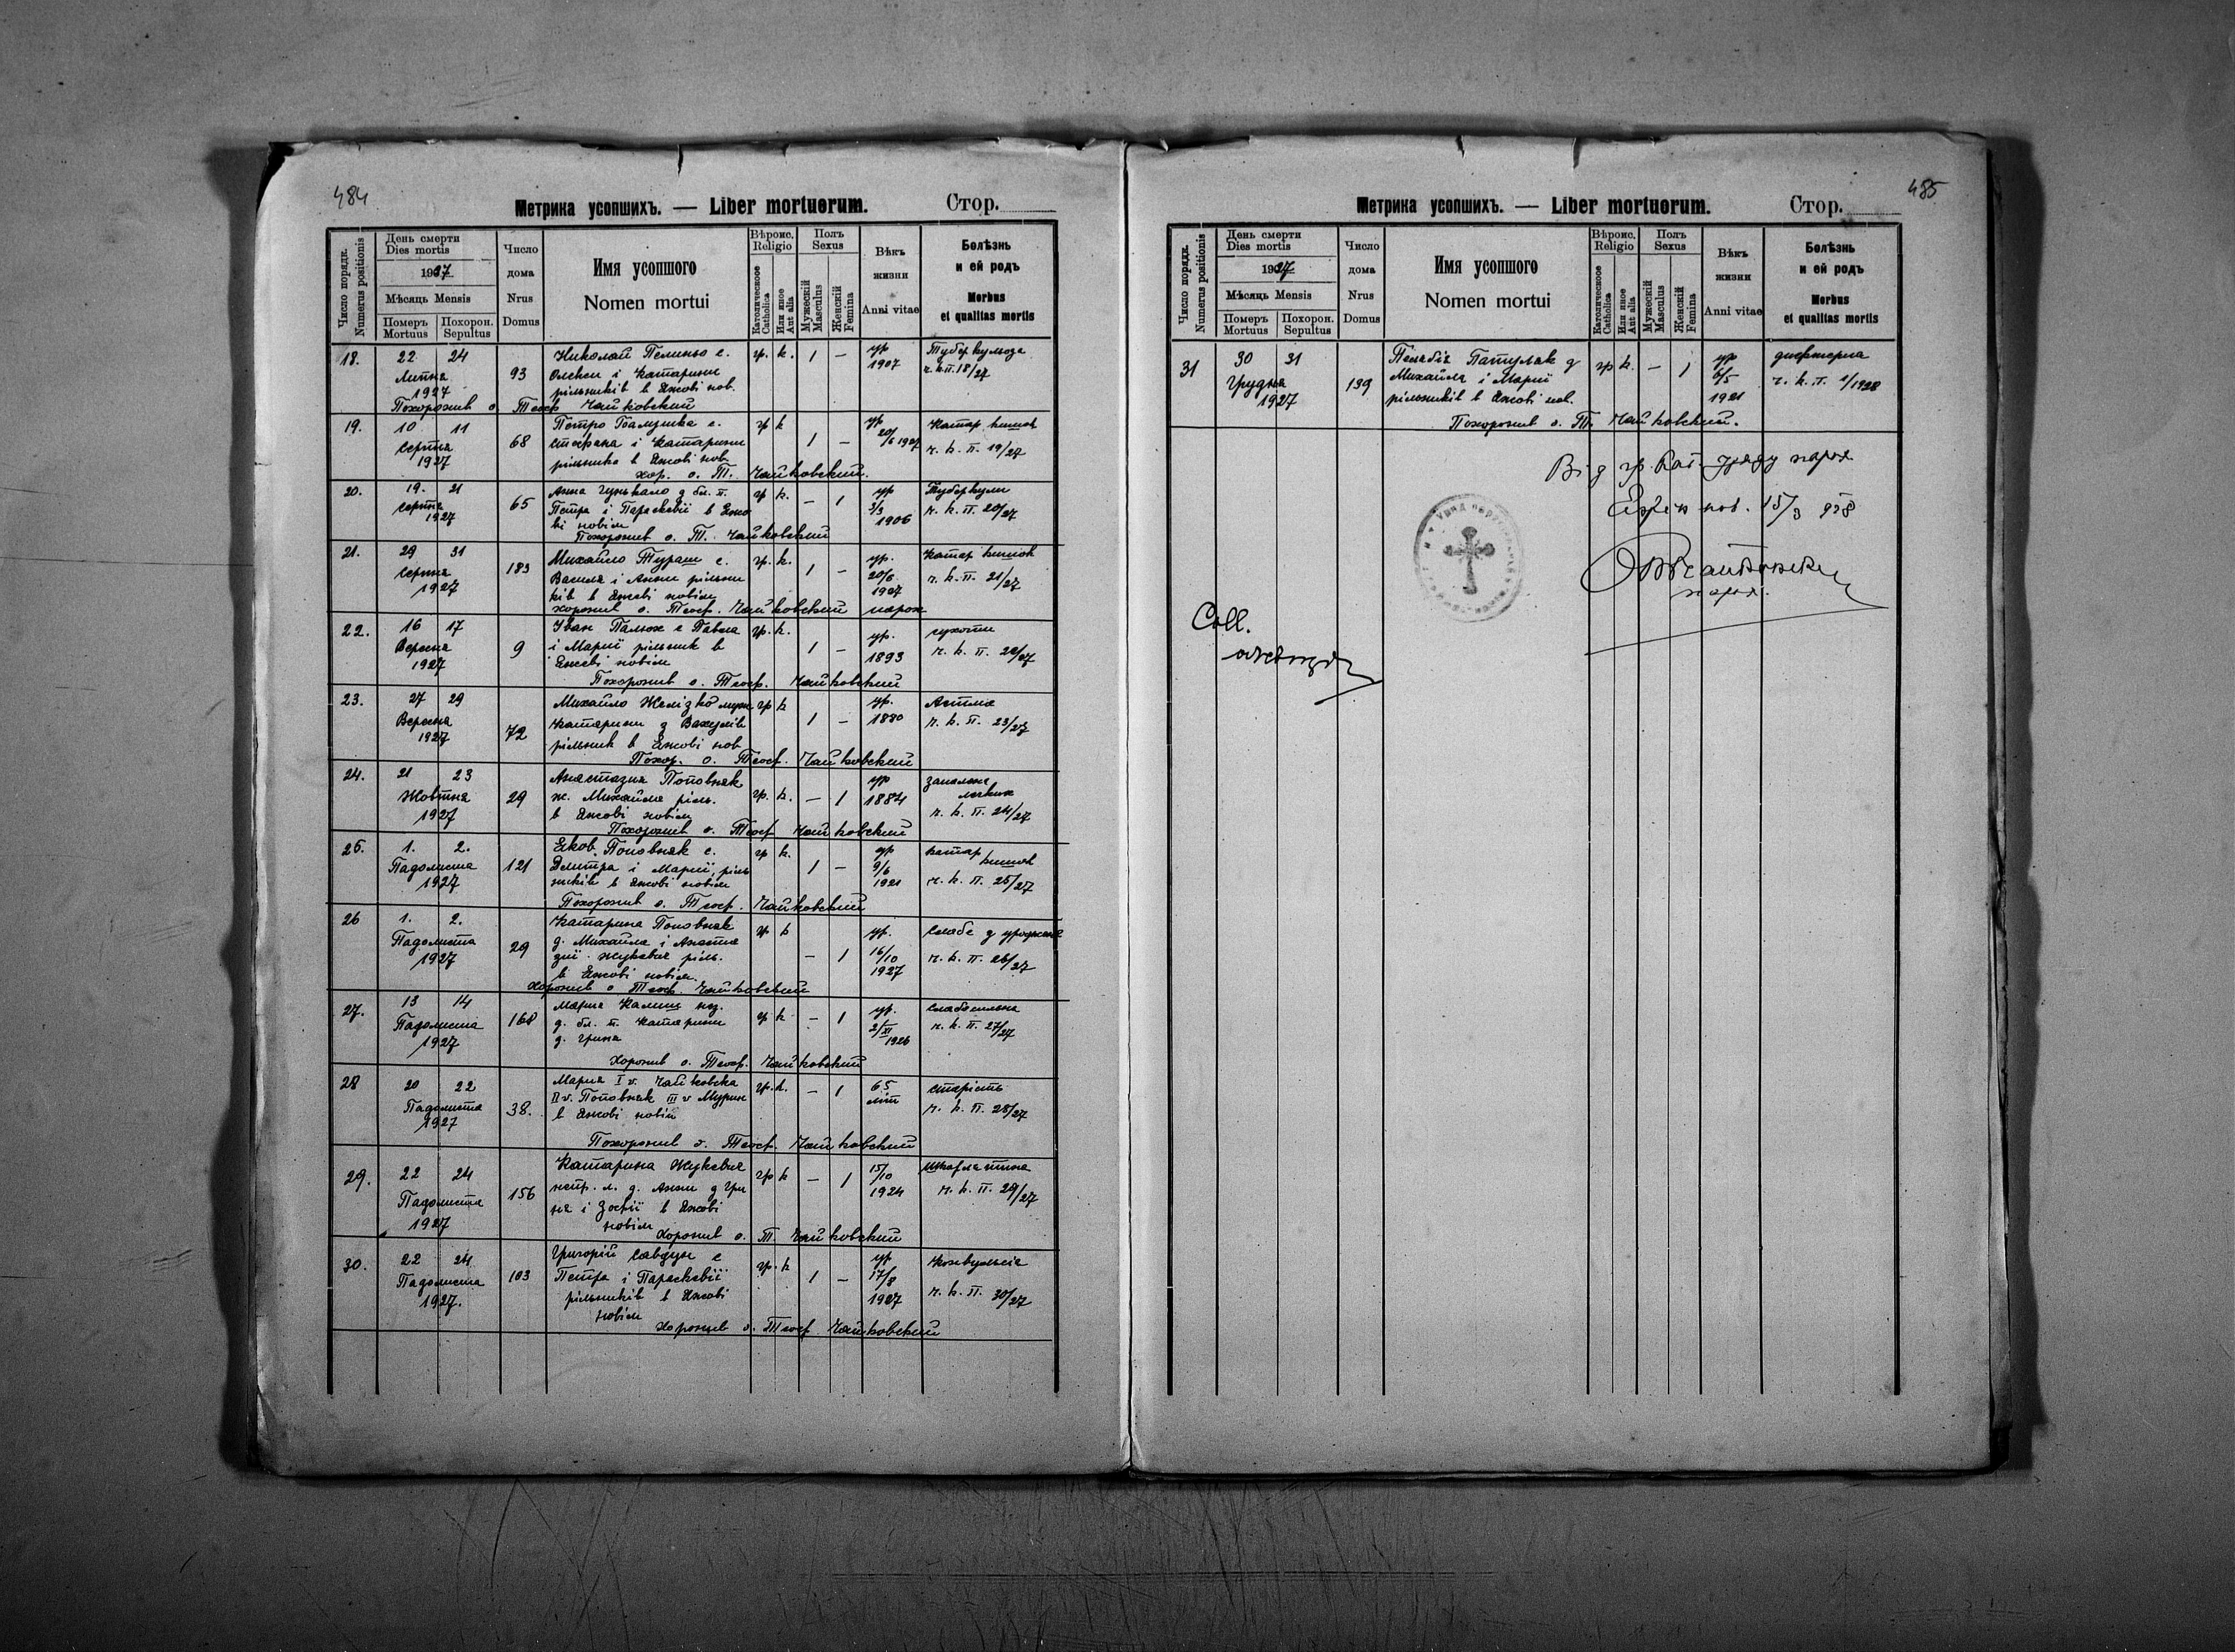 484
Метрика усопшихъ. — Liber mortuorum. Стор.
Число порядк. Numerus positionis
День смерти
Dies mortis
1927
Мѣсяць Mensis
Померъ Mortuus
Похорон. Sepultus
Число дома
Nrus Domus
Имя усопшого
Nomen mortui
Вѣроис. Religio
Католическое Catholica
Или иное Aut alia
Полъ Sexus
Мужескій Masculus
Женскій Femina
Вѣкъ жизни
Anni vitae
Болѣзнь и ей родъ
Morbus et qualitas mortis
18. 22 24 Николай с. гр. к. 1 — ур Туберкульоза
Липня 93 Олекси і Катарини 1907 ч. к. п. 18/27
1927 рільників в Яжові нов.
Похоронив о. Теоф Чайковский
19. 10 11 Петро с. гр к ур Катар кишок
Серпня 68 Стефана і Катарини 1 — 20/6 1927 ч. к. п. 19/27
1927 в Яжові нов
хор. о. Т. Чайковский.
20. 19. 21 Анна д бл. п. гр к. — 1 ур Туберкули
Серпня 65 Петра і Параскевії в Яжо 3/3 ч. к. п. 20/27
1927 ві новім 1906
Похоронив о. Т. Чайковский
21. 29 31 Михайло Тураш с. гр. к. ур. Катар кишок
Серпня 183 Василя і Анни рільни 1 — 20/6 ч. к. п. 21/27
1927 ків в Яжові новім 1927
хоронив о. Теоф. Чайковский парох
22. 16 17 Іван Палюх с Павла гр. к. ур. сухоти
Вересня 9 і Марії рільник в 1 — 1893 ч. к. п. 22/27
1927 Яжеві новім
Похоронив о. Теоф. Чайковский
23. 27 29 Михайло Желізко муж гр к ур. Астма
Вересня 72 Катарини д 1 — 1880 ч. к. п. 23/27
1927 рільник в Яжові нов
Похор. о. Теоф. Чайковский
24. 21 23 Анастазия Поповняк ур запалення
Жовтня 29 ж. Михайла ріль. гр. к. — 1 1884 легких
1927 в Яжові новім ч. к. п. 24/27
Похоронив о. Теоф Чайковский
25. 1. 2. Яков Поповняк с. гр к. ур катар кишок
Падолиста 121 Дмитра і Марії, ріль 1 — 9/6 ч. к. п. 25/27
1927 ників в Яжові новім 1921
Похоронив о. Теоф. Чайковский
26 1. 2. Катарина Поповняк гр к ур. слабе з уродженя
Падолиста 29 д. Михайла і Анаста — 1 16/10 ч. к. п. 26/27
1927 зиї Жукевич ріль. 1927
в Яжові новім.
Хоронив о Теоф. Чайковский
27. 13 14 Мария ур.
Падолиста 168 д. бл. п. Катарини гр к — 1 2/XI ч. к. п. 27/27
1927 д. Гриня 1926
Хоронив о. Теоф. Чайковский
28 20 22 Мария I v. Чайковска гр. к. — 1 65 старість
Падолиста 38. II v. Поповняк III v літ ч. к. п. 28/27
1927 в Яжові новім
Похоронив о. Теоф. Чайковский
29. 22 24 Катарина Жукевич гр к — 1 15/10 шкарлятина
Падолиста 156 непр. л. д. Анни д Гри 1924 ч. к. п. 29/27
1927 ня і Зофії в Яжові
новім
Хоронив о. Т. Чайковский
30. 22 24 Григорій Савдун с гр. к ур Конвульсія
Падолиста 103 Петра і Параскевії 1 — 17/8 ч. к. п. 30/27
1927. рільників в Яжові 1927
новім
Хоронив о. Теоф Чайковский
485
Метрика усопшихъ. — Liber mortuorum. Стор.
Число порядк. Numerus positionis
День смерти
Dies mortis
1927
Мѣсяць Mensis
Померъ Mortuus
Похорон. Sepultus
Число дома
Nrus Domus
Имя усопшого
Nomen mortui
Вѣроис. Religio
Католическое Catholica
Или иное Aut alia
Полъ Sexus
Мужескій Masculus
Женскій Femina
Вѣкъ жизни
Anni vitae
Болѣзнь и ей родъ
Morbus et qualitas mortis
31 30 31 д гр к. — 1 ур дифтерия
Грудня 139 Михайла і Марії 6/5 ч. к. п. 1/1928
1927 рільників в Яжові нов. 1921
Похоронив о. Т. Чайковский.
Від гр. кат. уряду парох.
нов. 15/3 928
парох.
Coll.